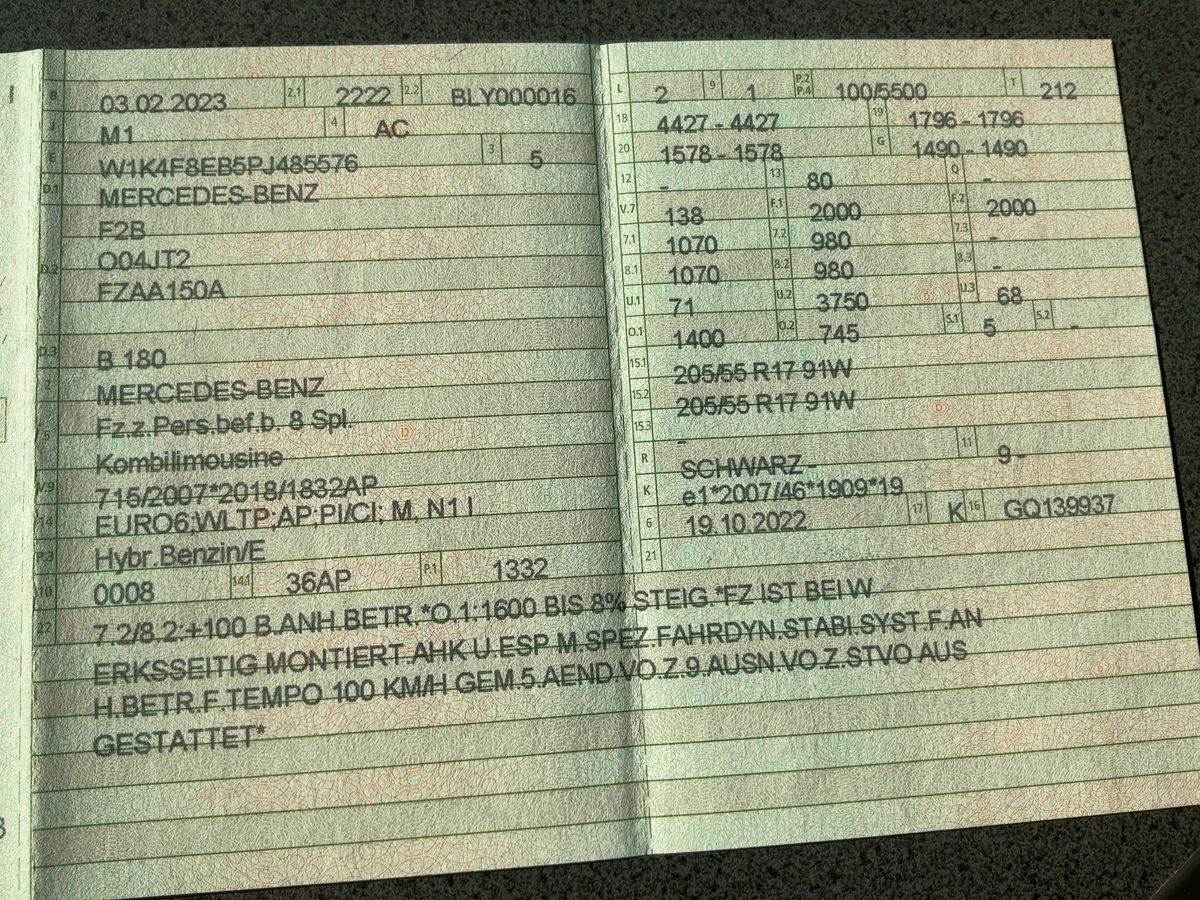 B 03.02.2023 2.1 2222 2.2 BLY000016
J M1 4 AC
E W1K4F8EB5PJ485576 3 5
D.1 MERCEDES-BENZ
F2B
D.2 O04JT2
FZAA150A
D.3 B 180
2 MERCEDES-BENZ
5 Fz.z.Pers.bef.b. 8 Spl.
Kombilimousine
V.9 715/2007*2018/1832AP
14 EURO6;WLTP;AP;PI/CI; M, N1 I
P.3 Hybr.Benzin/E
10 0008 14.1 36AP P.1 1332
L 2 9 1 P.2 P.4 100/5500 T 212
18 4427 - 4427 19 1796 - 1796
20 1578 - 1578 G 1490 - 1490
12 - 13 80 Q -
V.7 138 F.1 2000 F.2 2000
7.1 1070 7.2 980 7.3 -
8.1 1070 8.2 980 8.3 -
U.1 71 U.2 3750 U.3 68
O.1 1400 O.2 745 S.1 5 S.2 -
15.1 205/55 R17 91W
15.2 205/55 R17 91W
15.3 -
R SCHWARZ - 11 9 -
K e1*2007/46*1909*19
6 19.10.2022 17 K 16 GQ139937
21
22 7.2/8.2:+100 B.ANH.BETR.*O.1:1600 BIS 8% STEIG.*FZ IST BEI W
ERKSSEITIG MONTIERT.AHK U.ESP M.SPEZ.FAHRDYN.STABI.SYST.F.AN
H.BETR.F.TEMPO 100 KM/H GEM.5.AEND.VO.Z.9.AUSN.VO.Z.STVO AUS
GESTATTET*